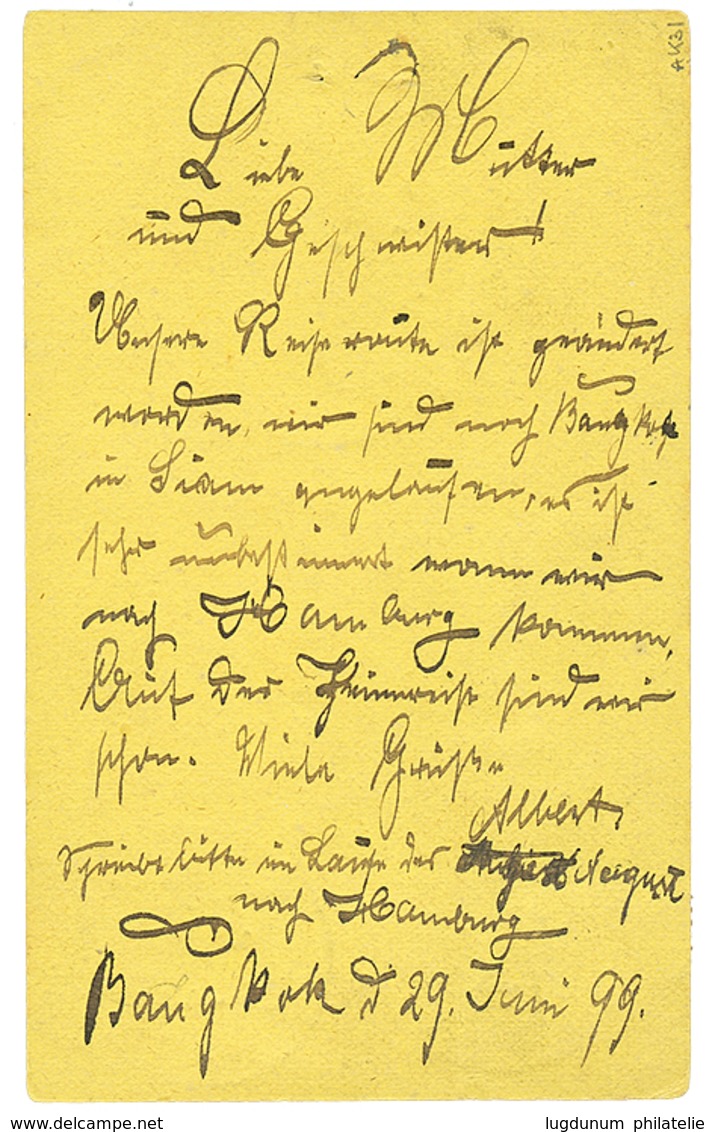 AK31
Liebe Mutter
und Geschwister!
Unsere Reiseroute ist geändert
worden, wir sind noch Bangkok
in Siam angelaufen, es ist
sehr unbestimmt wann wir
nach Hamburg kommen,
Auf der Heimreise sind wir
schon. Viele Grüße
Albert.
Schreibt bitte im Laufe des August
nach Hamburg
Bangkok d 29. Juni 99.
delcampe.net
lugdunum philatelie